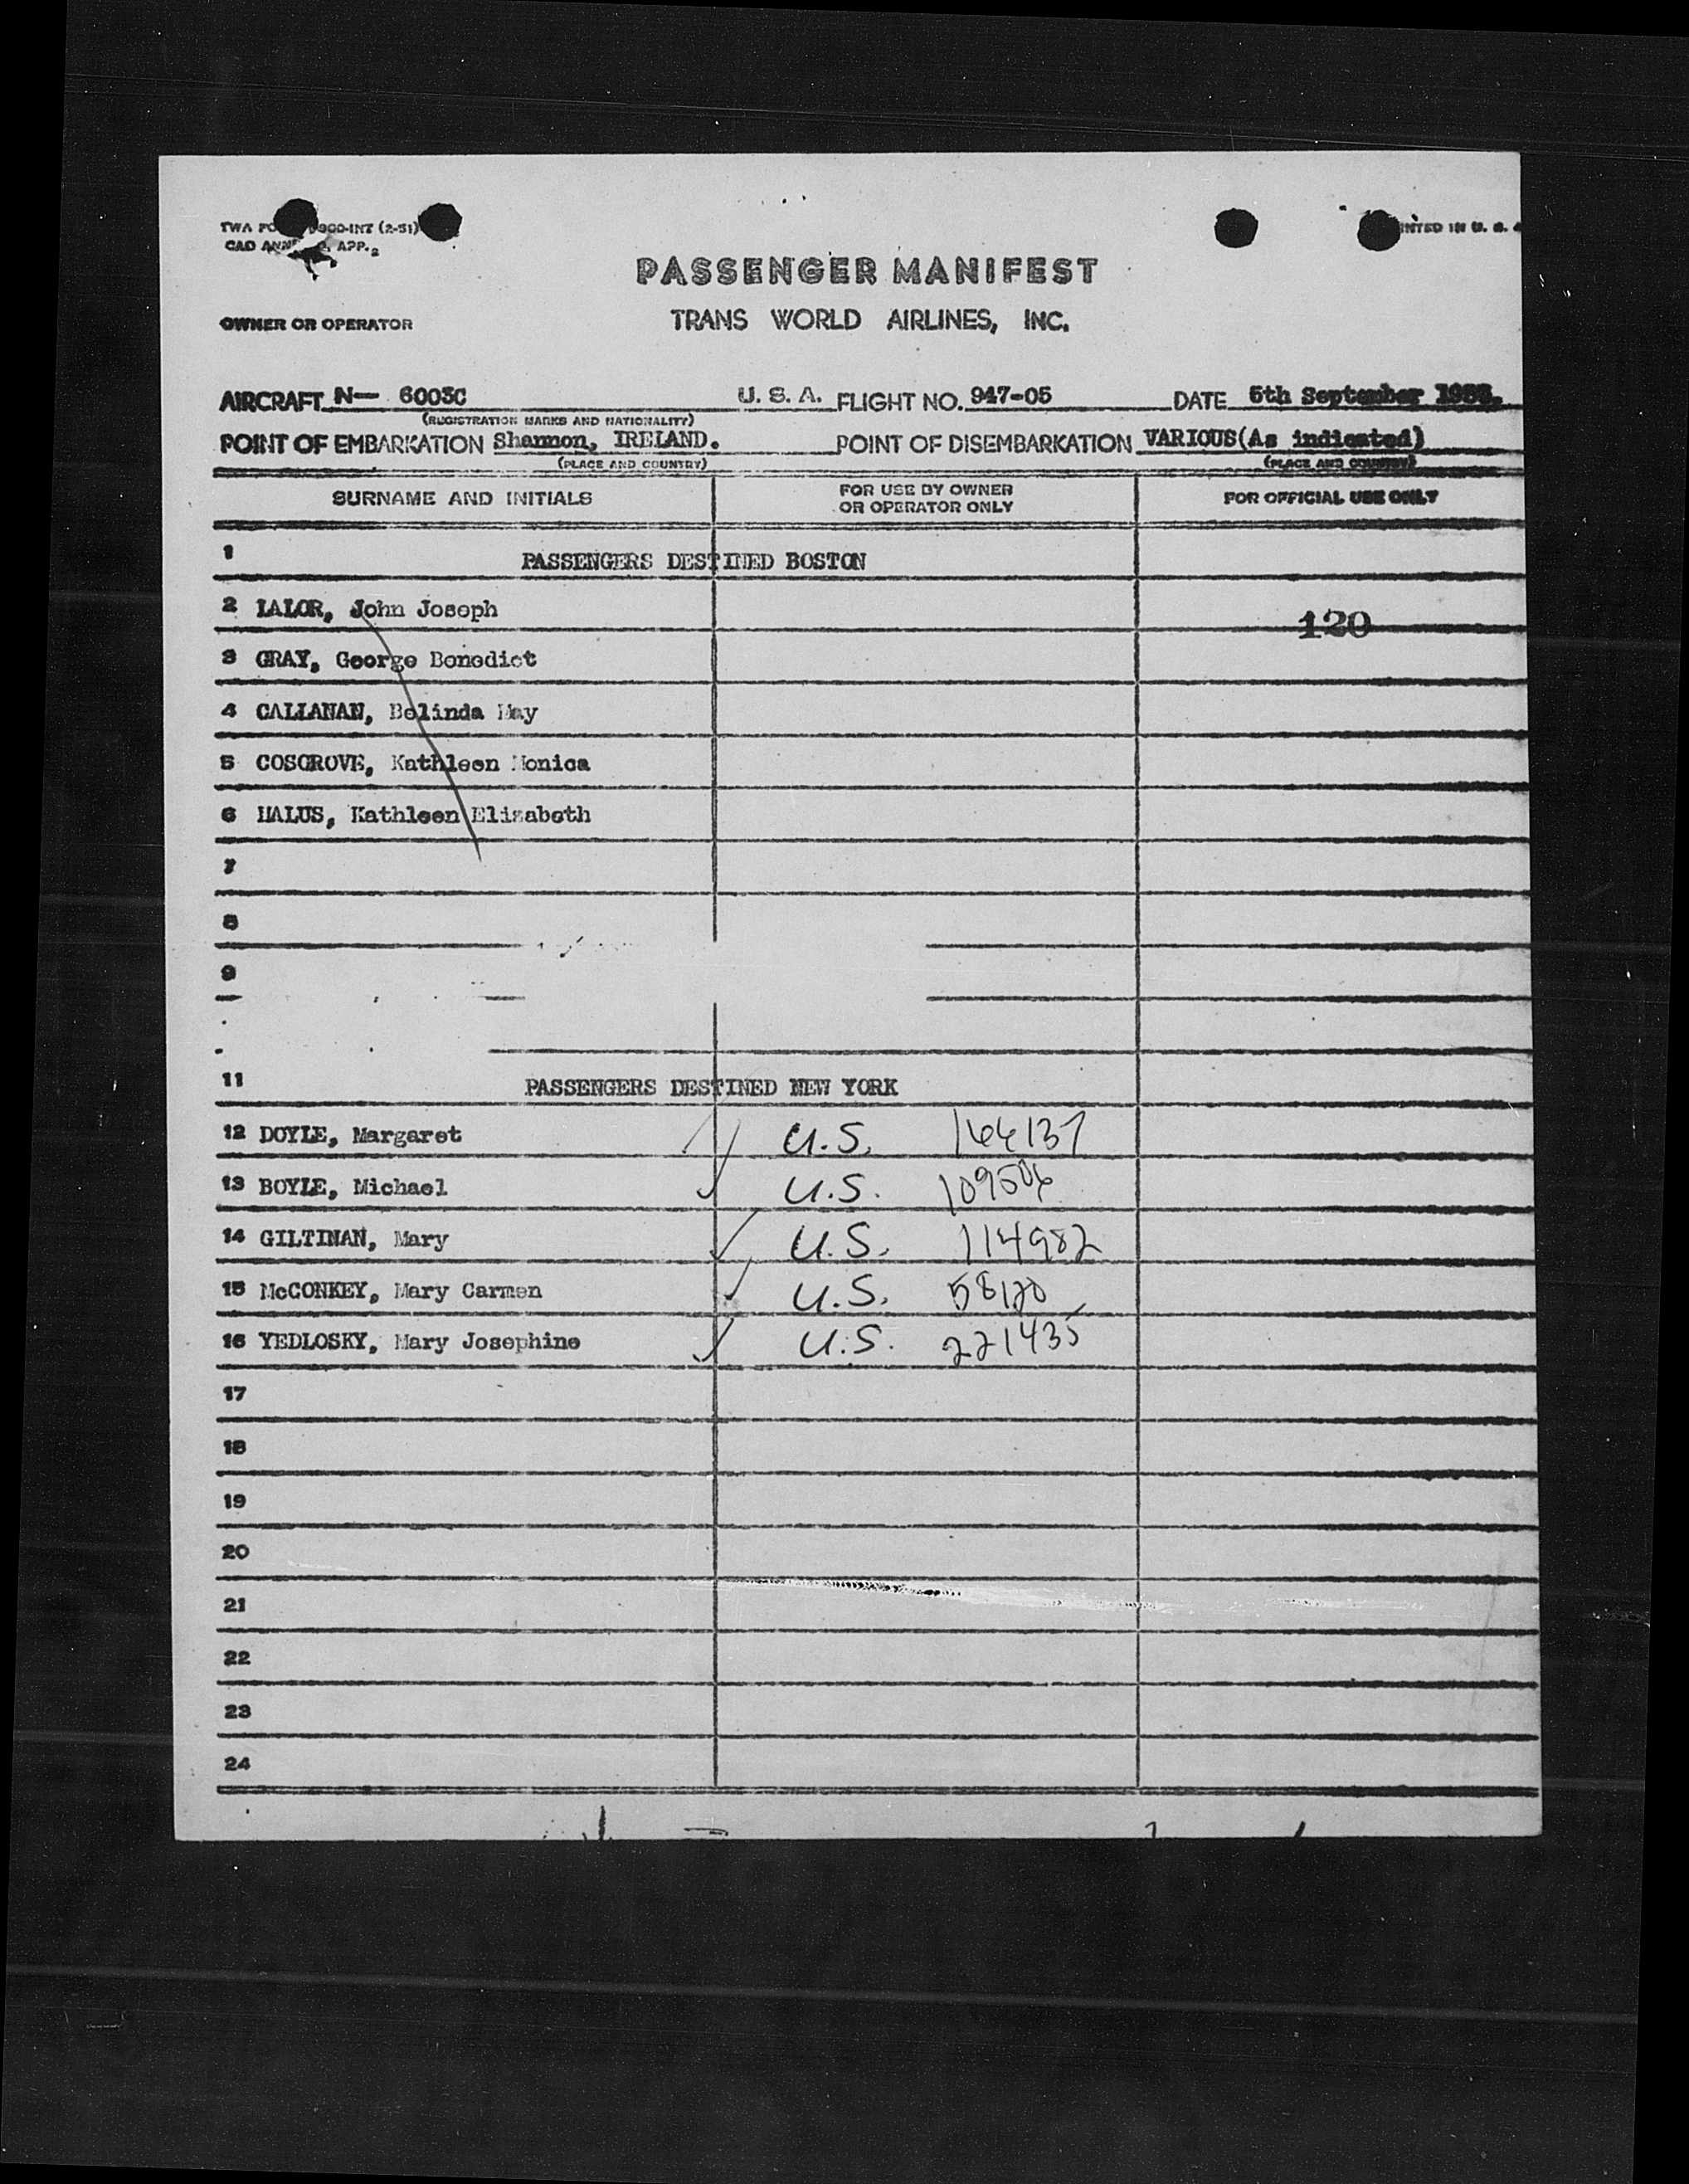 TWA FO 900-INT (2-51)
CAD APP.
INTED IN U. S. A
PASSENGER MANIFEST
OWNER OR OPERATOR TRANS WORLD AIRLINES, INC.
AIRCRAFT N— 6003C U. S. A. FLIGHT NO. 947-05 DATE 5th September
(REGISTRATION MARKS AND NATIONALITY)
POINT OF EMBARKATION Shannon, IRELAND. POINT OF DISEMBARKATION VARIOUS(As indicated)
(PLACE AND COUNTRY) (PLACE AND COUNTRY)
SURNAME AND INITIALS FOR USE BY OWNER OR OPERATOR ONLY FOR OFFICIAL USE ONLY
1 PASSENGERS DESTINED BOSTON
2 LALOR, John Joseph 120
3 GRAY, George Benedict
4 CALLANAN, Belinda May
5 COSGROVE, Kathleen Monica
6 HALUS, Kathleen Elizabeth
7
8
9
11 PASSENGERS DESTINED NEW YORK
12 DOYLE, Margaret U.S. 144137
13 BOYLE, Michael U.S. 109506
14 GILTINAN, Mary U.S. 114982
15 McCONKEY, Mary Carmen U.S. 58120
16 YEDLOSKY, Mary Josephine U.S. 221435
17
18
19
20
21
22
23
24